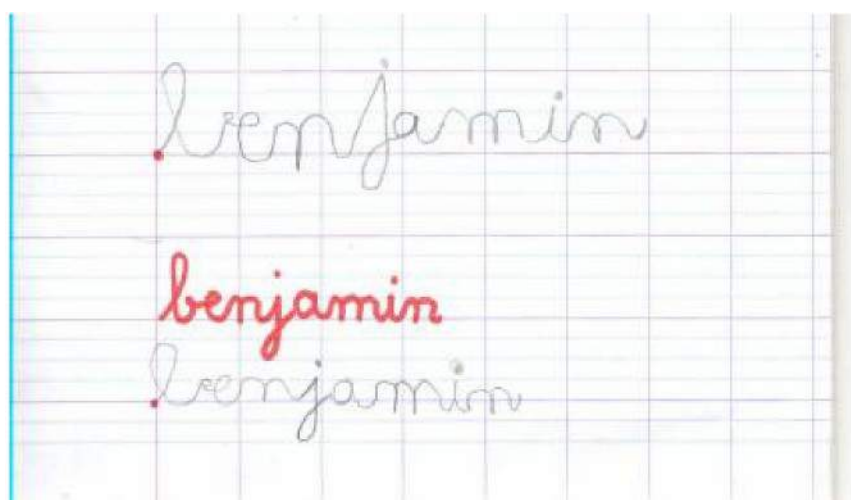 benjamin
benjamin
benjamin